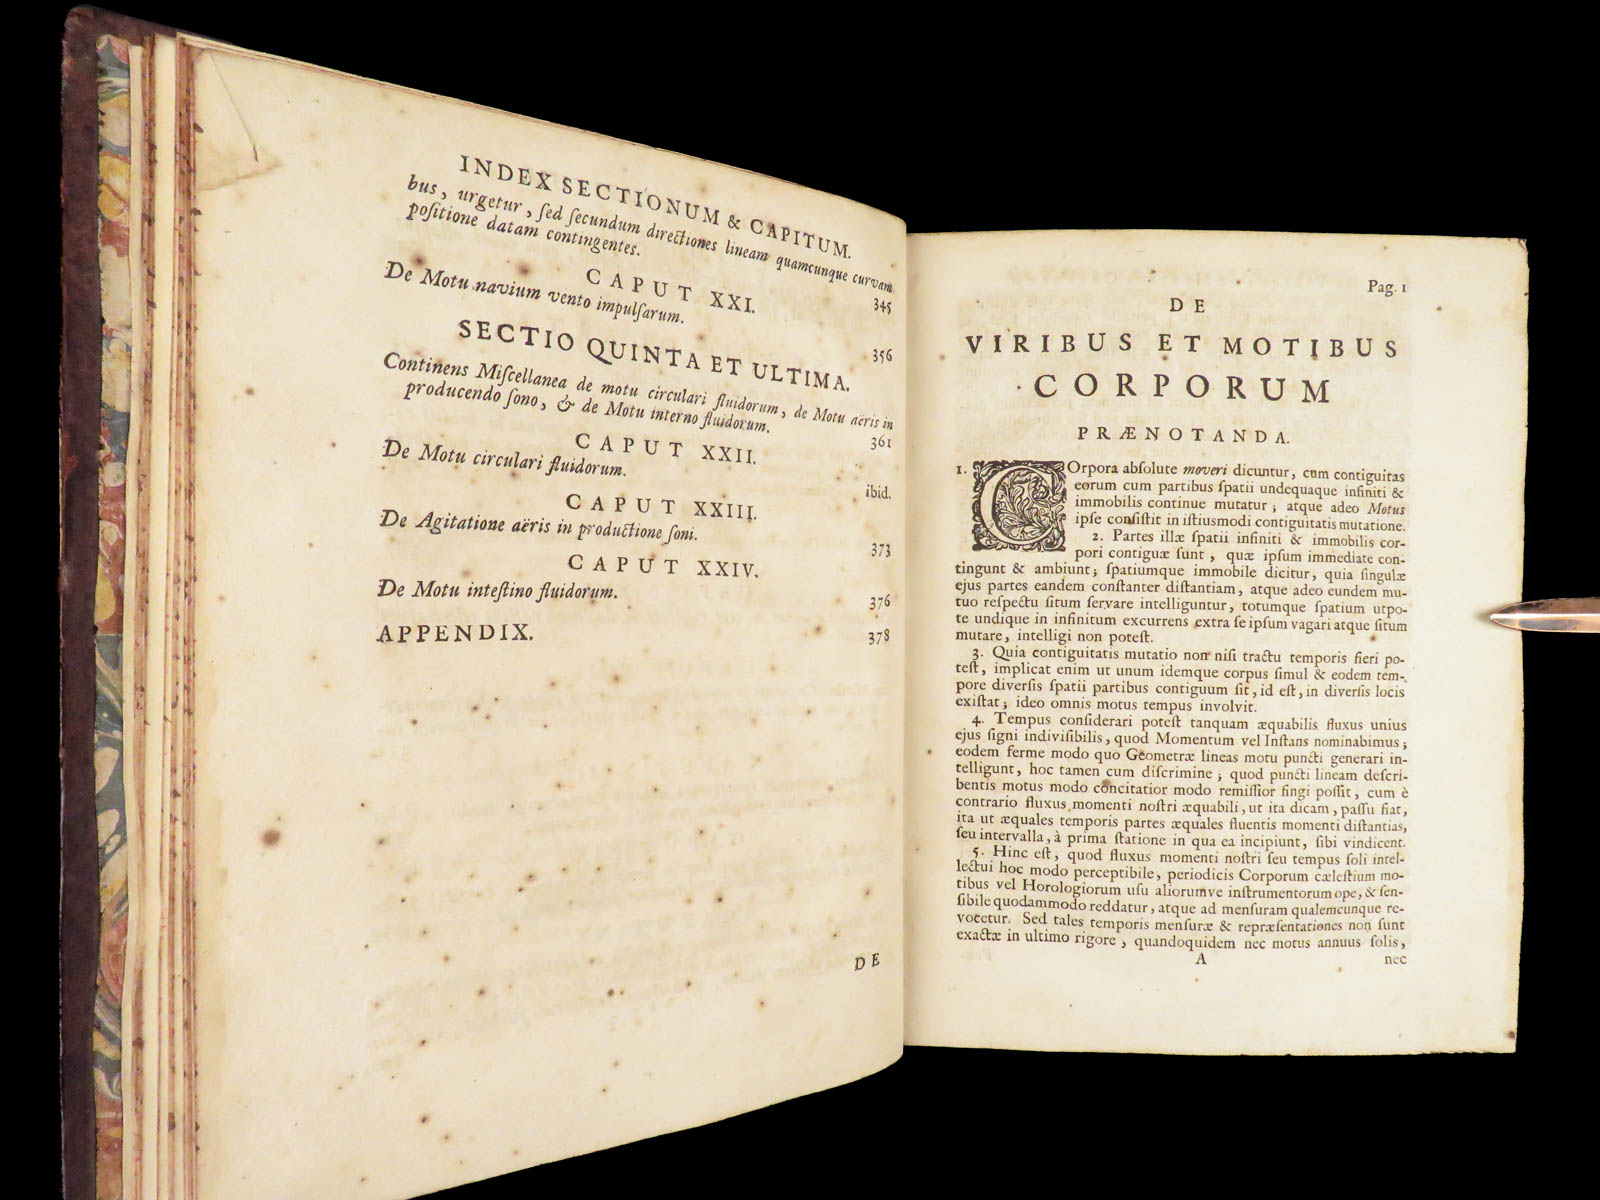 INDEX SECTIONUM & CAPITUM.
bus, urgetur, ſed ſecundum directiones lineam quamcunque curvam
poſitione datam contingentes. 345
CAPUT XXI.
De Motu navium vento impulſarum. 356
SECTIO QUINTA ET ULTIMA.
Continens Miſcellanea de motu circulari fluidorum, de Motu aëris in
producendo ſono, & de Motu interno fluidorum. 361
CAPUT XXII.
De Motu circulari fluidorum. ibid.
CAPUT XXIII.
De Agitatione aëris in productione ſoni. 373
CAPUT XXIV.
De Motu inteſtino fluidorum. 376
APPENDIX. 378
DE
Pag. 1
DE
VIRIBUS ET MOTIBUS
CORPORUM
PRÆNOTANDA.
1. COrpora abſolute moveri dicuntur, cum contiguitas
eorum cum partibus ſpatii undequaque infiniti &
immobilis continue mutatur; atque adeo Motus
ipſe conſiſtit in iſtiusmodi contiguitatis mutatione.
2. Partes illæ ſpatii infiniti & immobilis cor-
pori contiguæ ſunt, quæ ipſum immediate con-
tingunt & ambiunt; ſpatiumque immobile dicitur, quia ſingulæ
ejus partes eandem conſtanter diſtantiam, atque adeo eundem mu-
tuo reſpectu ſitum ſervare intelliguntur, totumque ſpatium utpo-
te undique in infinitum excurrens extra ſe ipſum vagari atque ſitum
mutare, intelligi non poteſt.
3. Quia contiguitatis mutatio non niſi tractu temporis fieri po-
teſt, implicat enim ut unum idemque corpus ſimul & eodem tem-
pore diverſis ſpatii partibus contiguum ſit, id eſt, in diverſis locis
exiſtat; ideo omnis motus tempus involvit.
4. Tempus conſiderari poteſt tanquam æquabilis fluxus unius
ejus ſigni indiviſibilis, quod Momentum vel Inſtans nominabimus;
eodem ferme modo quo Geometræ lineas motu puncti generari in-
telligunt, hoc tamen cum diſcrimine; quod puncti lineam deſcri-
bentis motus modo concitatior modo remiſſior fingi poſſit, cum è
contrario fluxus momenti noſtri æquabili, ut ita dicam, paſſu fiat,
ita ut æquales temporis partes æquales fluentis momenti diſtantias,
ſeu intervalla, à prima ſtatione in qua ea incipiunt, ſibi vindicent.
5. Hinc eſt, quod fluxus momenti noſtri ſeu tempus ſoli intel-
lectui hoc modo perceptibile, periodicis Corporum cæleſtium mo-
tibus vel Horologiorum uſu aliorumve inſtrumentorum ope, & ſen-
ſibile quodammodo reddatur, atque ad menſuram qualemcunque re-
vocetur. Sed tales temporis menſuræ & repræſentationes non ſunt
exactæ in ultimo rigore, quandoquidem nec motus annuus ſolis,
A nec